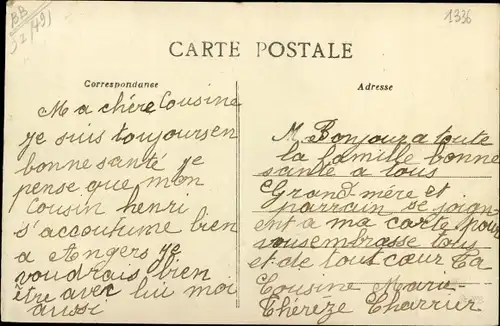 BB
1336
CARTE POSTALE
Correspondance
Adresse
Ma chère Cousine
je suis toujours en
bonne santé je
pense que mon
Cousin henri
s'accoutume bien
a Angers je
voudrais bien
être avec lui moi
aussi
M. Bonjour a toute
la famille bonne
santé a tous
Grand mère et
parrain se joign
ent a ma carte pour
vous embrasse tous
et de tout cœur Ta
Cousine Marie
Thérèze Charrier